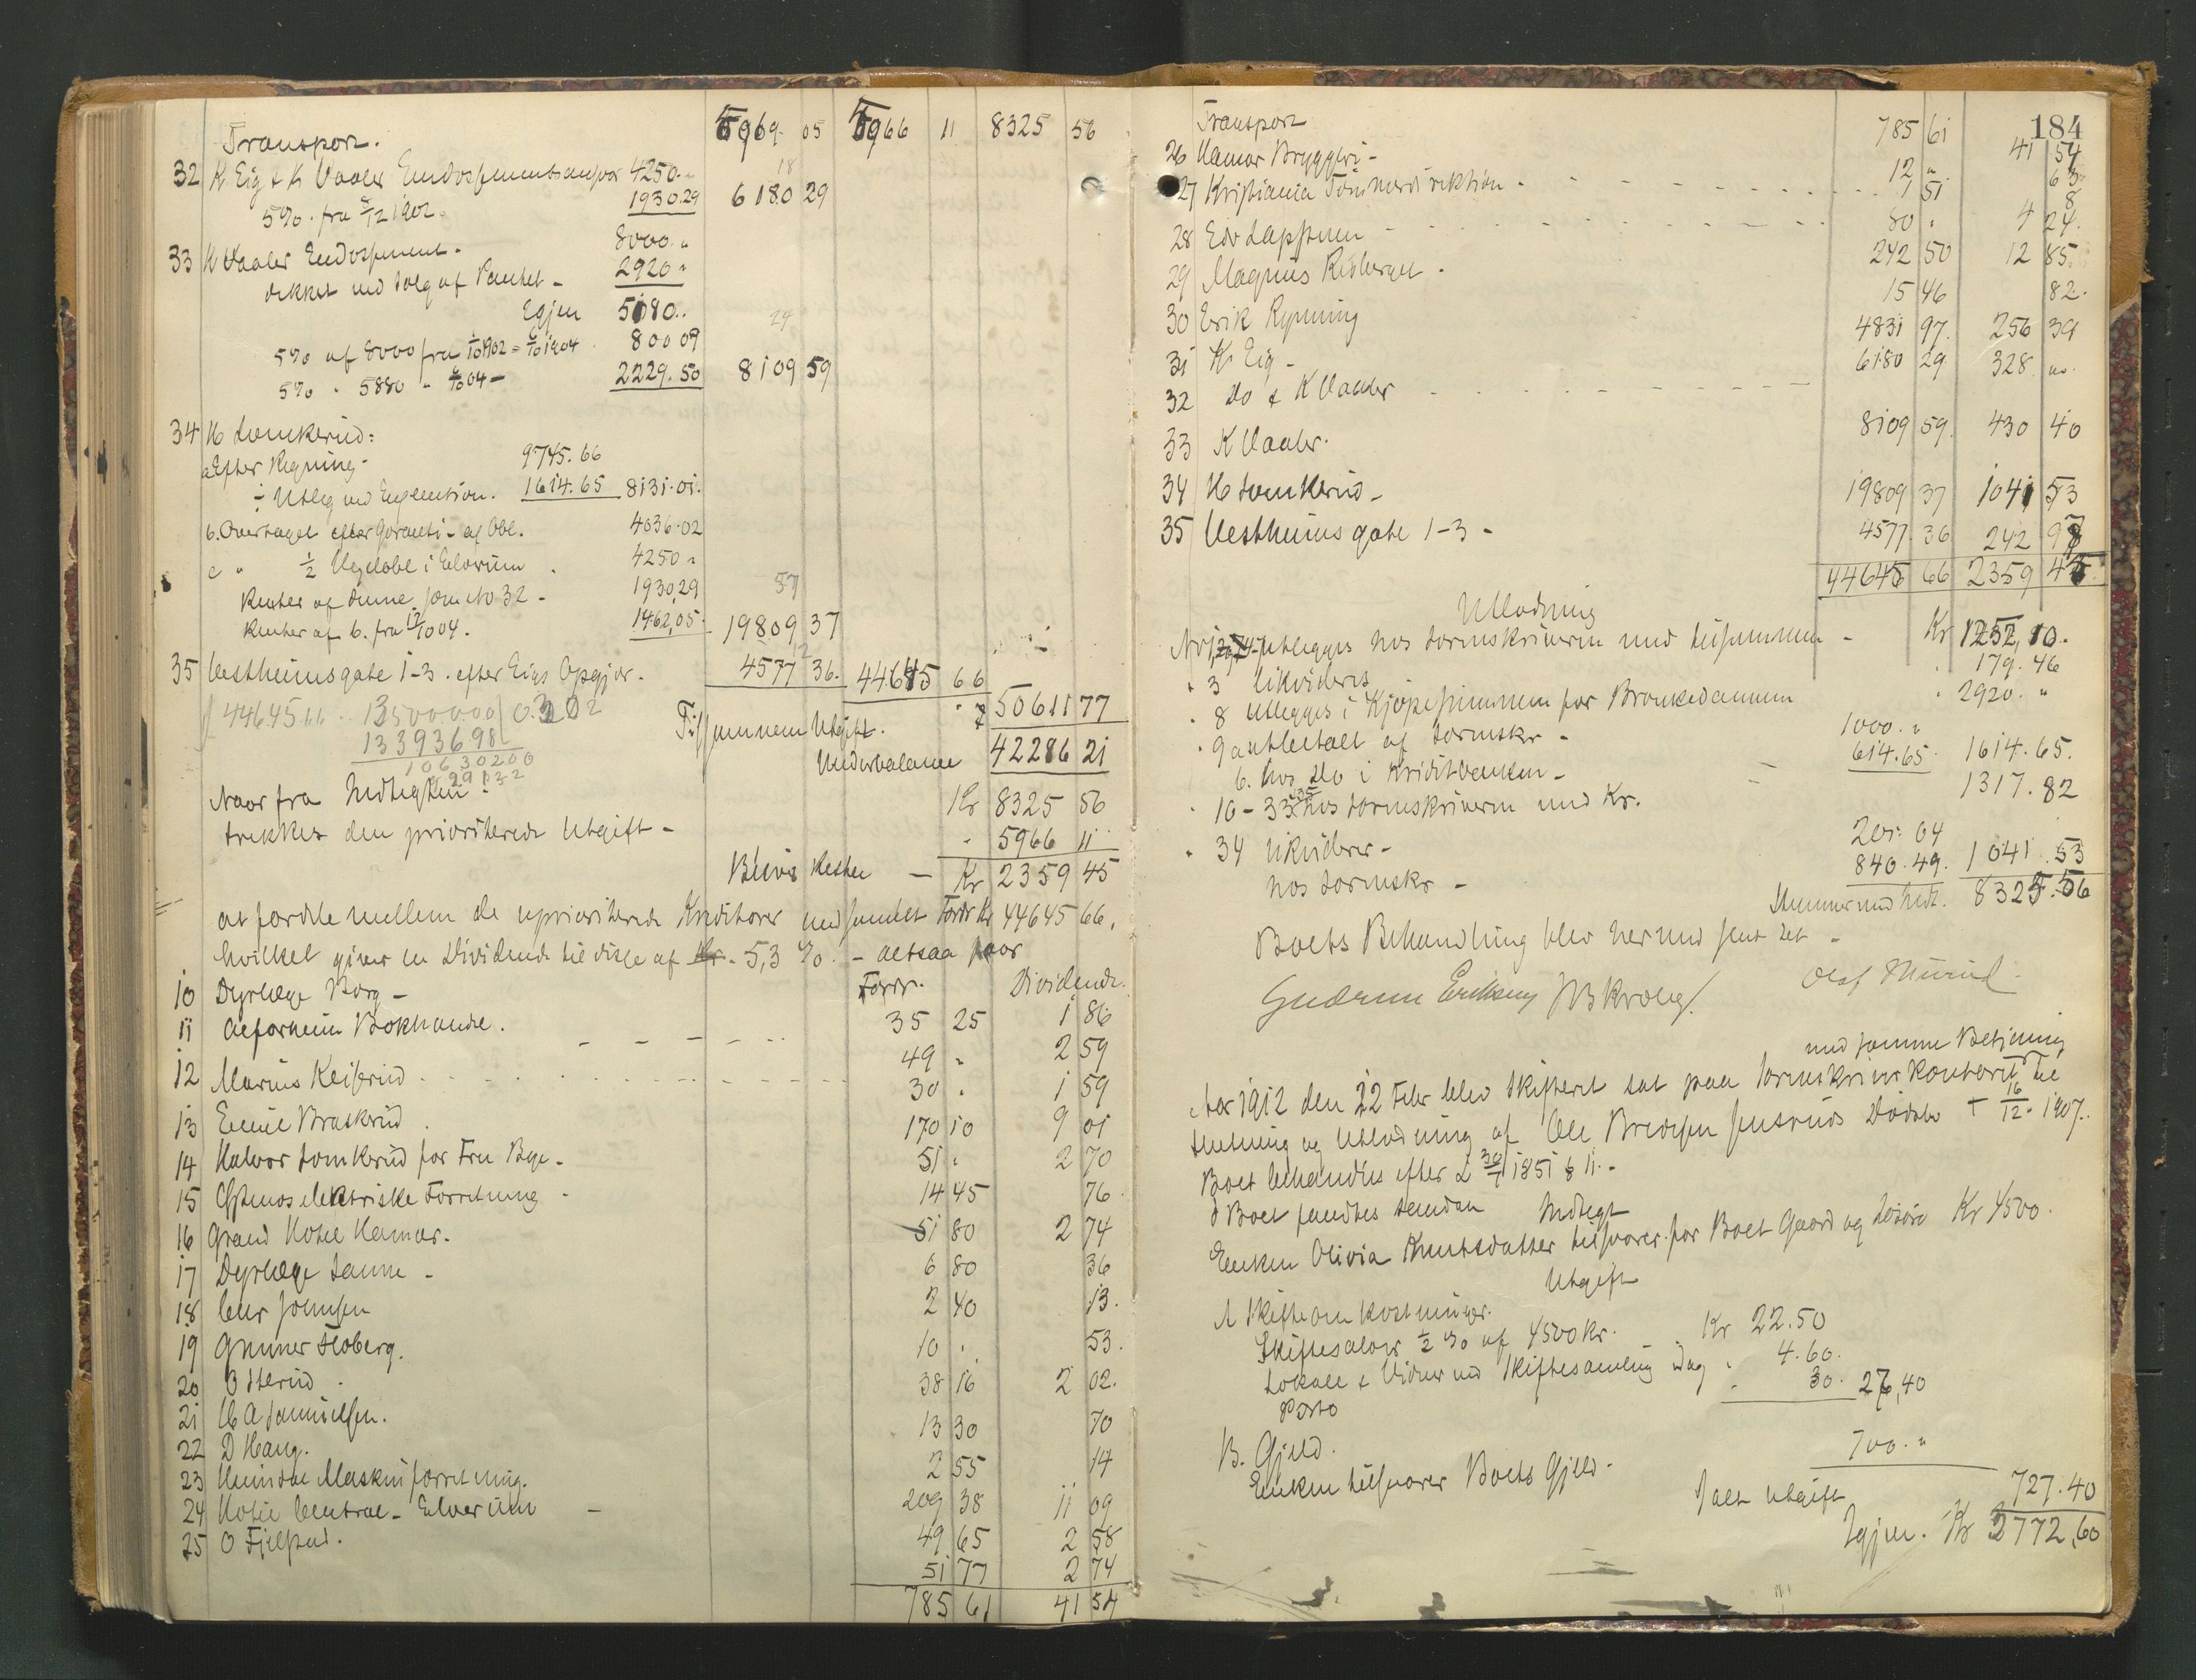 Transport. 5969 05 5966 11 8325 56
32 K Eig & K Vaaler Endossementsansvar 4250.
5% fra 5/12 1902. 1930.29 6180 29
33 K Vaaler Endossement. 8000.
dekket ved Salg af Pantet 2920
Egjen 5080..
5% af 8000 fra 1/10 1902 - 6/10 1904 800 09
5% " 5880 " 6/10 04 - 2229.50 8109 59
34 H Lomkerud:
a Efter Regning 9745.66
÷ Utlæg ved Execution. 1614.65 8131.01.
b. Overtaget efter Garanti - af Obl. 4036.02
c " 1/2 Vexelobl i Elverum 4250
Renter af denne som No 32 - 1930,29
Renter af b. fra 12/10 04. 1462,05 19809 37
35 Vestheimsgate 1-3. efter Eigs Opgjør. 4577 36. 44645 66
44645 66 Tilsammen Utgift. 50611 77
13393698
10630200
Underbalance 42286 21
Naar fra Indtægten Kr 8325 56
trækkes den prioriterede Utgift - 5966 11
Blivis Resten - Kr 2359 45
at fordele mellem de uprioriterede Kreditorer med samlet Fordr Kr 44645 66.
hvilket giver en Dividende til disse af Kr. 5,3 %. - altsaa paa
Fordr. Dividende.
10 Dyrlæge Borg - 35 25 1 86
11 Alfarheim Bokhandel. 49 " 2 59
12 Marius Keiserud 30 . 1 59
13 Emil Braskerud 170 10 9 01
14 Halvor Lomkerud for Fru Bye. 51 . 2 70
15 elektriske Forretning 14 45 76
16 Grand Hotel Hamar. 51 80 2 74
17 Dyrlæge 6 80 36
18 Johnsen 2 40 13.
19 Gunner Floberg. 10 . 53.
20 O Sterud 38 16 2 02.
21 A Samuelsen. 13 30 70
22 D Haug. 2 55 14
23 Heimdal Maskinforretning. 209 38 11 09
24 Hotel Central - Elverum - 49 65 2 58
25 O Fjelstad. 51 77 2 74
785 61 41 54
184
Transport 785 61 41 54
26 Hamar Bryggeri - 12 " 63
27 Kristiania Tømmerdirektion 1 51 8
28 Edv 80 " 4 24.
29 Magnus Risberget. 242 50 12 85.
30 Erik Rypening 15 46 82.
31 K Eig - 4831 97. 256 39
32 Do & K Vaaler 6180 29 328
33 K Vaaler. 8109 59. 430 40
34 H Lomkerud - 19809 37 1041 53
35 Vestheims gate 1-3 - 4577 36 242 97
44645 66 2359 45
Utlodning
No 1, 2, 4-7 utlegges hos Sorenskriveren med tilsammen - Kr 1252,10.
" 3 likvideres 179.46
" 8 utlegges i Kjøpesummen for 2920. "
" 9 a utbetalt af Sorenskr - 1000. "
b. hos Do i Kreditbanken - 614.65. 1614.65.
" 10 - 33 & 35 hos Sorenskriveren med Kr. 1317.82
" 34 likviderer - 201.04
hos Sorenskr - 840.49. 1041.53
Stemmer med Indt. 8325.56
Boets Behandling blev hermed sluttet -
Gudrun Eriksen Olaf
med samme Betjening
Aar 1912 den 22 Febr blev Skifteret sat paa Sorenskriverkontoret til
Slutning og Utlodning af Ole Bredesen Dødsbo † 16/12 - 1907.
Boet behandles efter L 30/7 1851 § 11. -
I Boet fandtes saadan Indtægt
Enken Olivia Knutsdatter tilsvarer for Boet Gaard og Løsøre Kr 4500.
Utgift
A Skifteomkostninger.
Skiftesalær 1/2 % af 4500 kr. Kr 22.50
Lokale & Vidner ved Skiftesamling idag " 4.60.
Porto 30. 27,40
B. Gjeld.
Enken tilsvarer Boets Gjeld. 700. "
Ialt Utgift 727.40
Igjen. Kr 3772,60